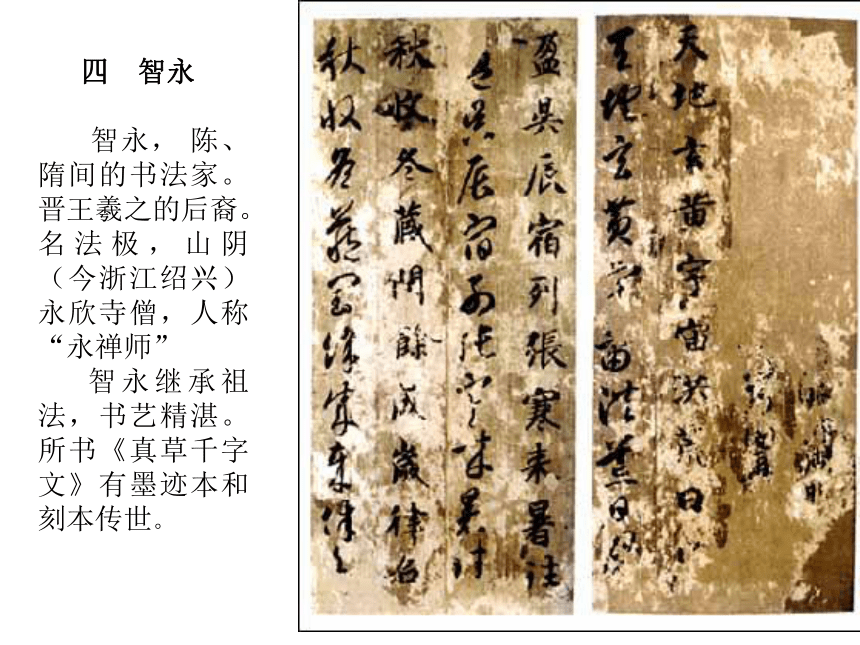 四 智永
智永， 陈、
隋间的书法家。
晋王羲之的后裔。
名法极，山阴
（今浙江绍兴）
永欣寺僧，人称
“永禅师”
智永继承祖
法，书艺精湛。
所书《真草千字
文》有墨迹本和
刻本传世。
天地玄黄宇宙洪荒日月
天地玄黄宇宙洪荒日月
盈昃辰宿列張寒来暑往
盈昃辰宿列張寒来暑往
秋收冬藏閏餘成歲律呂
秋收冬藏閏餘成歲律呂